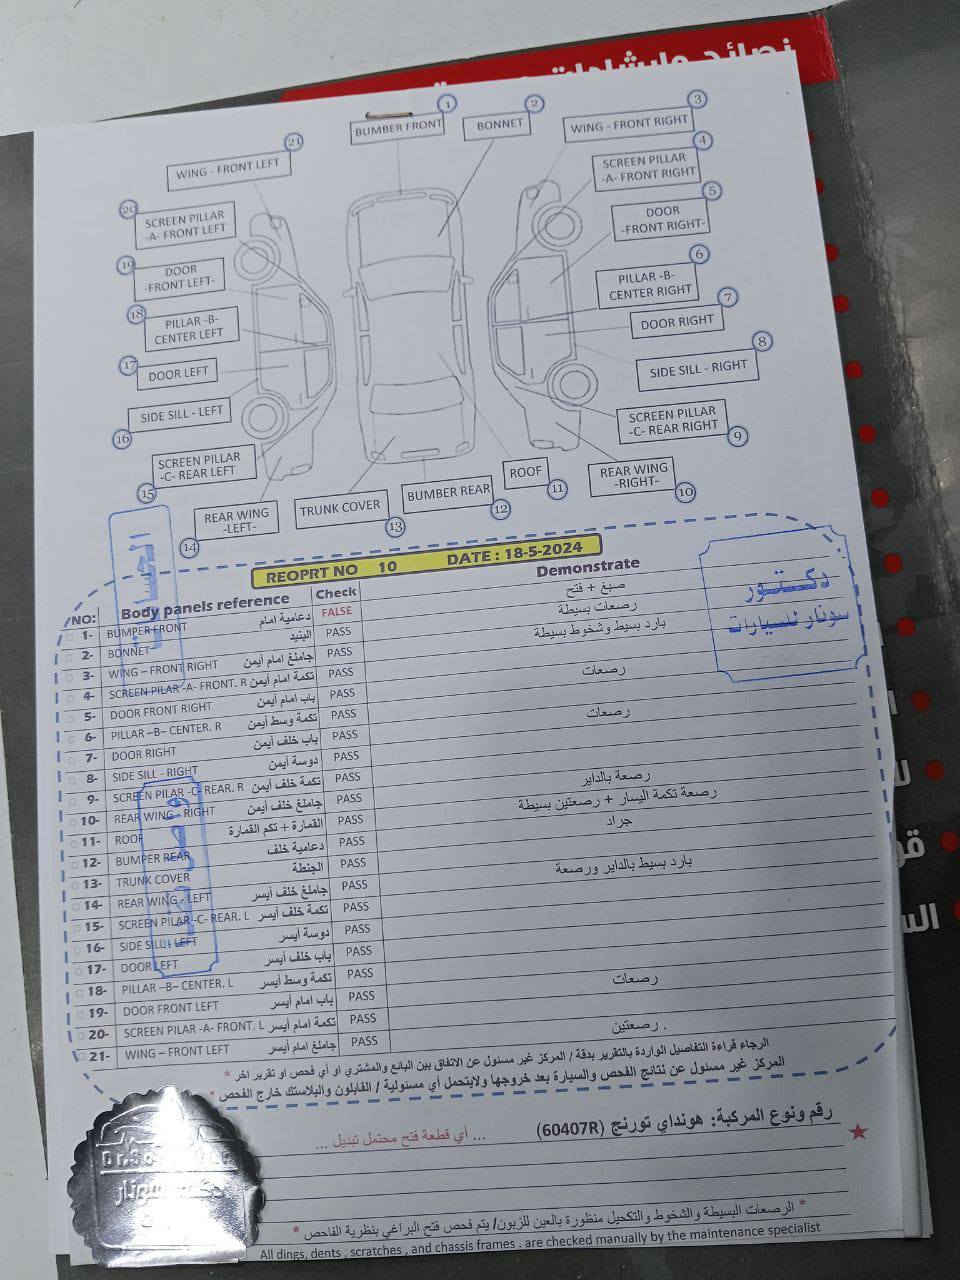 1
BUMBER FRONT
2
BONNET
3
WING - FRONT RIGHT
4
SCREEN PILLAR
-A- FRONT RIGHT
5
DOOR
-FRONT RIGHT-
6
PILLAR -B-
CENTER RIGHT
7
DOOR RIGHT
8
SIDE SILL - RIGHT
9
SCREEN PILLAR
-C- REAR RIGHT
10
REAR WING
-RIGHT-
11
ROOF
12
BUMBER REAR
13
TRUNK COVER
14
REAR WING
-LEFT-
15
SCREEN PILLAR
-C- REAR LEFT
16
SIDE SILL - LEFT
17
DOOR LEFT
18
PILLAR -B-
CENTER LEFT
19
DOOR
-FRONT LEFT-
20
SCREEN PILLAR
-A- FRONT LEFT
21
WING - FRONT LEFT
REOPRT NO 10 DATE : 18-5-2024
NO: Body panels reference Check Demonstrate
1- BUMPER FRONT دعامية امام FALSE صبغ + فتح
2- BONNET البنيد PASS رصعات بسيطة
3- WING – FRONT RIGHT جاملغ امام أيمن PASS بارد بسيط وشخوط بسيطة
4- SCREEN PILAR -A- FRONT. R تكمة امام أيمن PASS
5- DOOR FRONT RIGHT باب امام أيمن PASS رصعات
6- PILLAR –B– CENTER. R تكمة وسط أيمن PASS
7- DOOR RIGHT باب خلف أيمن PASS رصعات
8- SIDE SILL - RIGHT دوسة أيمن PASS
9- SCREEN PILAR -C- REAR. R تكمة خلف أيمن PASS
10- REAR WING - RIGHT جاملغ خلف أيمن PASS رصعة بالداير
11- ROOF القمارة + تكم القمارة PASS رصعة تكمة اليسار + رصعتين بسيطة
12- BUMPER REAR دعامية خلف PASS جراد
13- TRUNK COVER الجنطة PASS
14- REAR WING - LEFT جاملغ خلف أيسر PASS بارد بسيط بالداير ورصعة
15- SCREEN PILAR -C- REAR. L تكمة خلف أيسر PASS
16- SIDE SILL - LEFT دوسة أيسر PASS
17- DOOR LEFT باب خلف أيسر PASS
18- PILLAR –B– CENTER. L تكمة وسط أيسر PASS
19- DOOR FRONT LEFT باب امام أيسر PASS رصعات
20- SCREEN PILAR -A- FRONT. L تكمة امام أيسر PASS
21- WING – FRONT LEFT جاملغ امام أيسر PASS رصعتين .
دكتور
سونار لسيارات
الرجاء قراءة التفاصيل الواردة بالتقرير بدقة / المركز غير مسئول عن الاتفاق بين البائع والمشتري او أي فحص او تقرير اخر *
المركز غير مسئول عن نتائج الفحص والسيارة بعد خروجها ولايتحمل أي مسئولية / القابلون والبلاستك خارج الفحص *
رقم ونوع المركبة: هونداي تورنج (60407R) ... أي قطعة فتح محتمل تبديل ...
* الرصعات البسيطة والشخوط والتكحيل منظورة بالعين للزبون/ يتم فحص فتح البراغي بنظرية الفاحص *
All dings, dents , scratches , and chassis frames . are checked manually by the maintenance specialist